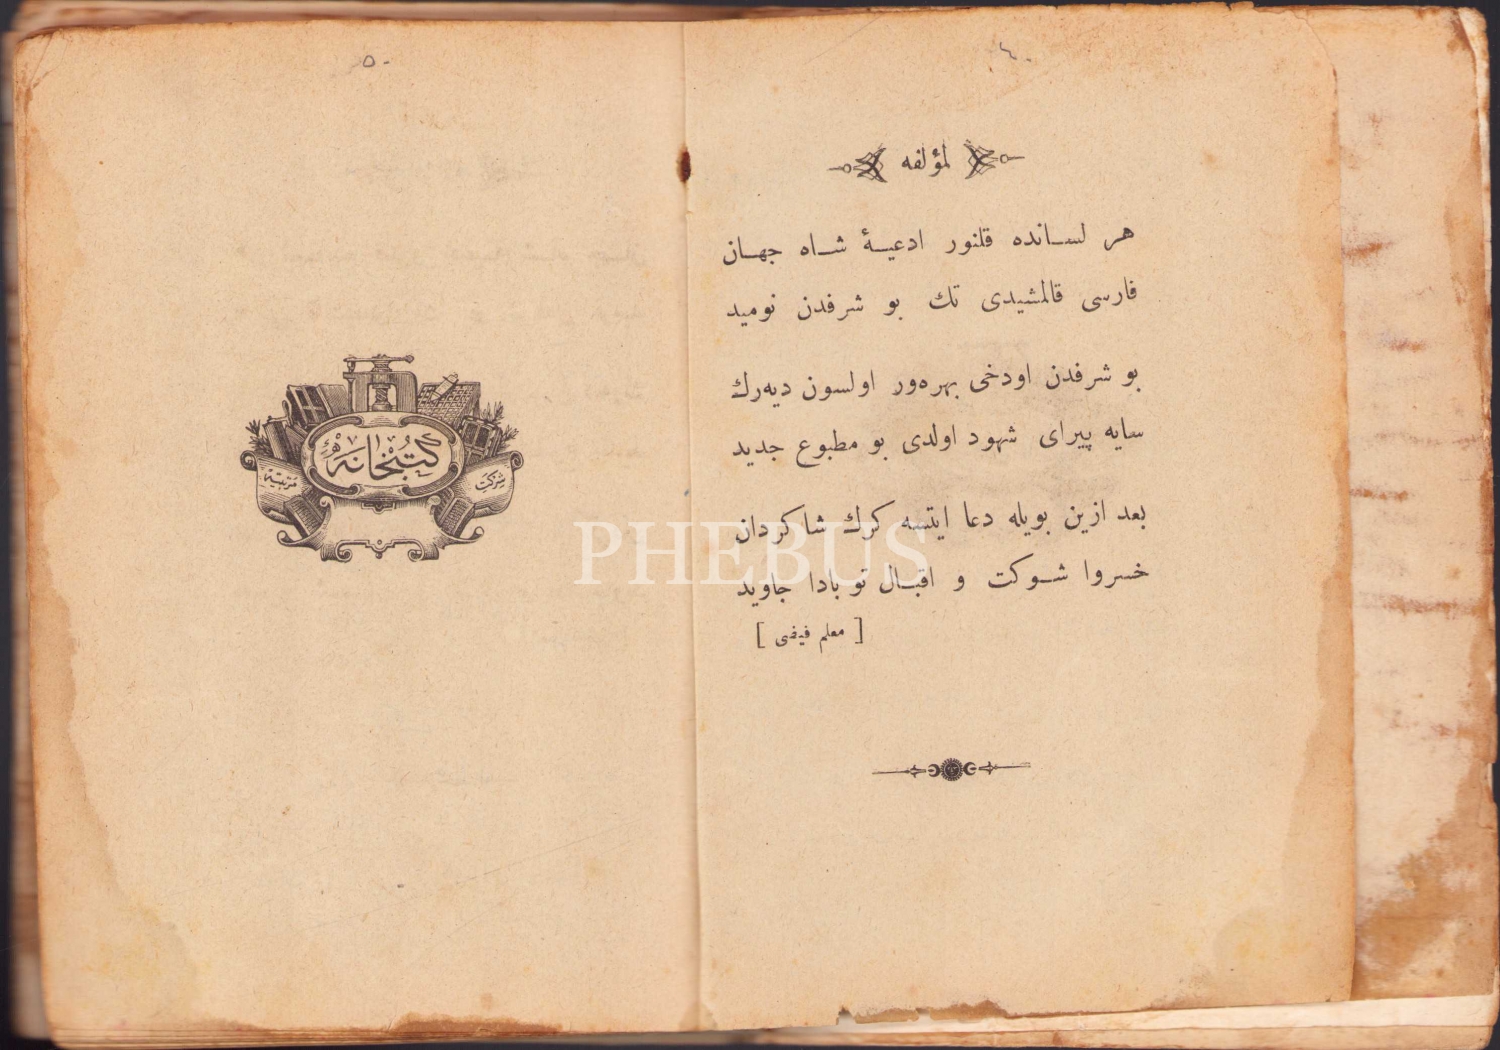 ٤٠
لمؤلفه
هر لسانده قلنور ادعيۀ شاه جهان
فارسى قالمشيدى تك بو شرفدن نوميد
بو شرفدن اودخى بهره‌ور اولسون ديه‌رك
سايه پيراى شهود اولدى بو مطبوع جديد
بعد ازين بويله دعا ايتسه كرك شاكردان
خسروا شوكت و اقبال تو بادا جاويد
[ معلم فيضى ]
٥٠
كتبخانهٔ
شركت
مرتبيه
PHEBUS